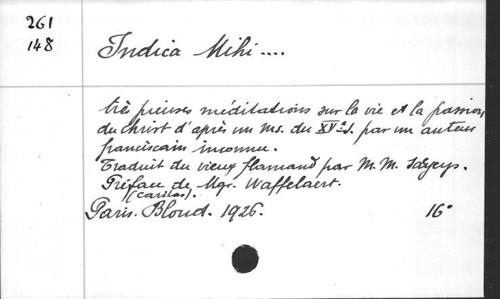 261
148
Indica Mihi....
très pieuses méditations sur la vie et la passion
du Christ d'après un ms. du XVe s. par un auteur
franciscain inconnu.
Traduit du vieux flamand par M. M. Saeyeys.
Préface de Mgr. Waffelaert.
(Caritas).
Paris. Bloud. 1926. 16°